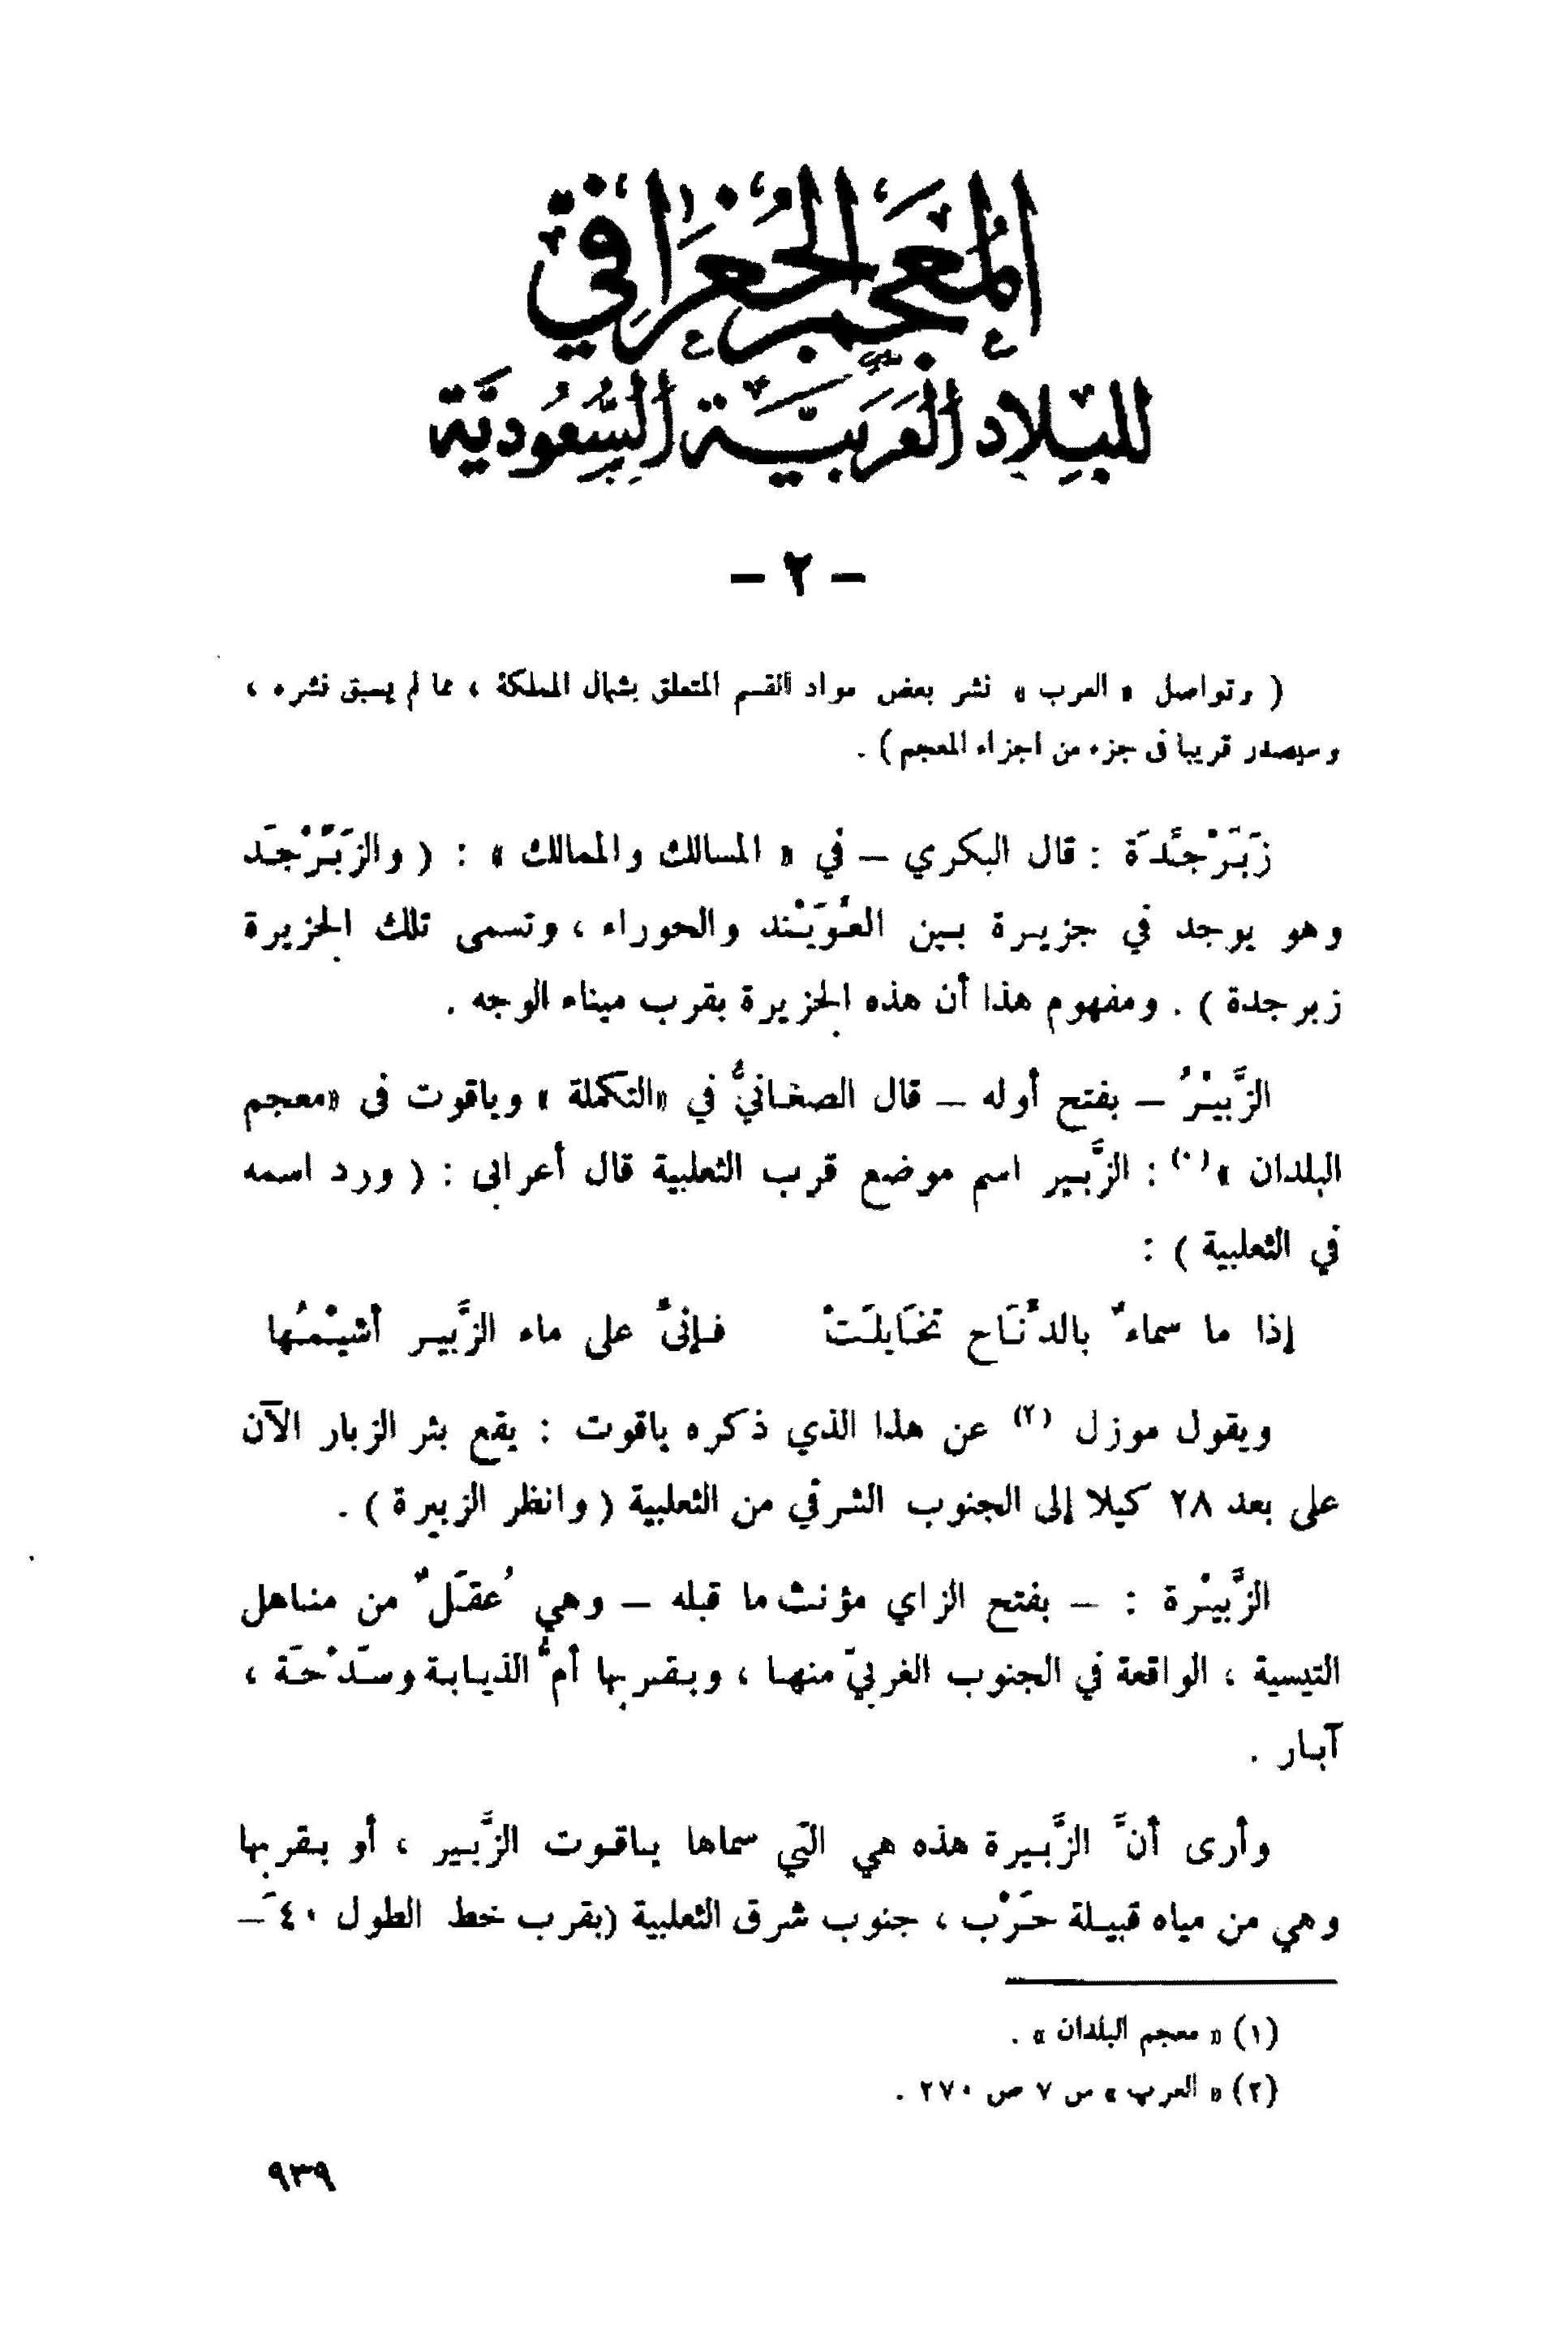 المعجم الجغرافي
للبلاد العربية السعودية
- ٢ -
( وتواصل « العرب » نشر بعض مواد القسم المتعلق بشمال المملكة ، مما لم يسبق نشره ،
وسيصدر قريبا في جزء من اجزاء المعجم ) .
زَبَرْجَدَة : قال البكري – في « المسالك والممالك » : ( والزَبَرْجَد
وهو يوجد في جزيرة بين العُوَيْند والحوراء ، وتسمى تلك الجزيرة
زبرجدة ) . ومفهوم هذا أن هذه الجزيرة بقرب ميناء الوجه .
الزَّبيْرُ – بفتح أوله – قال الصغانيُّ في «التكملة » وياقوت في «معجم
البلدان » (١) : الزَّبير اسم موضع قرب الثعلبية قال أعرابي : ( ورد اسمه
في الثعلبية ) :
إذا ما سماءٌ بالدَّنَاح تخَايلَتْ فإنيَّ على ماء الزَّبير أشيْمُها
ويقول موزل (٢) عن هذا الذي ذكره ياقوت : يقع بئر الزبار الآن
على بعد ٢٨ كيلا إلى الجنوب الشرقي من الثعلبية ( وانظر الزبيرة ) .
الزَّبيْرة : – بفتح الزاي مؤنث ما قبله – وهي عُقَلٌ من مناهل
التيسية ، الواقعة في الجنوب الغربيّ منها ، وبقربها أمُّ الذيابة وسَدْحَة ،
آبار .
وأرى أنَّ الزَّبيرة هذه هي التي سماها ياقوت الزَّبير ، أو بقربها
وهي من مياه قبيلة حَرْب ، جنوب شرق الثعلبية (بقرب خط الطول ٤٠َ –
(١) « معجم البلدان » .
(٢) « العرب » س ٧ ص ٢٧٠ .
٩٣٩